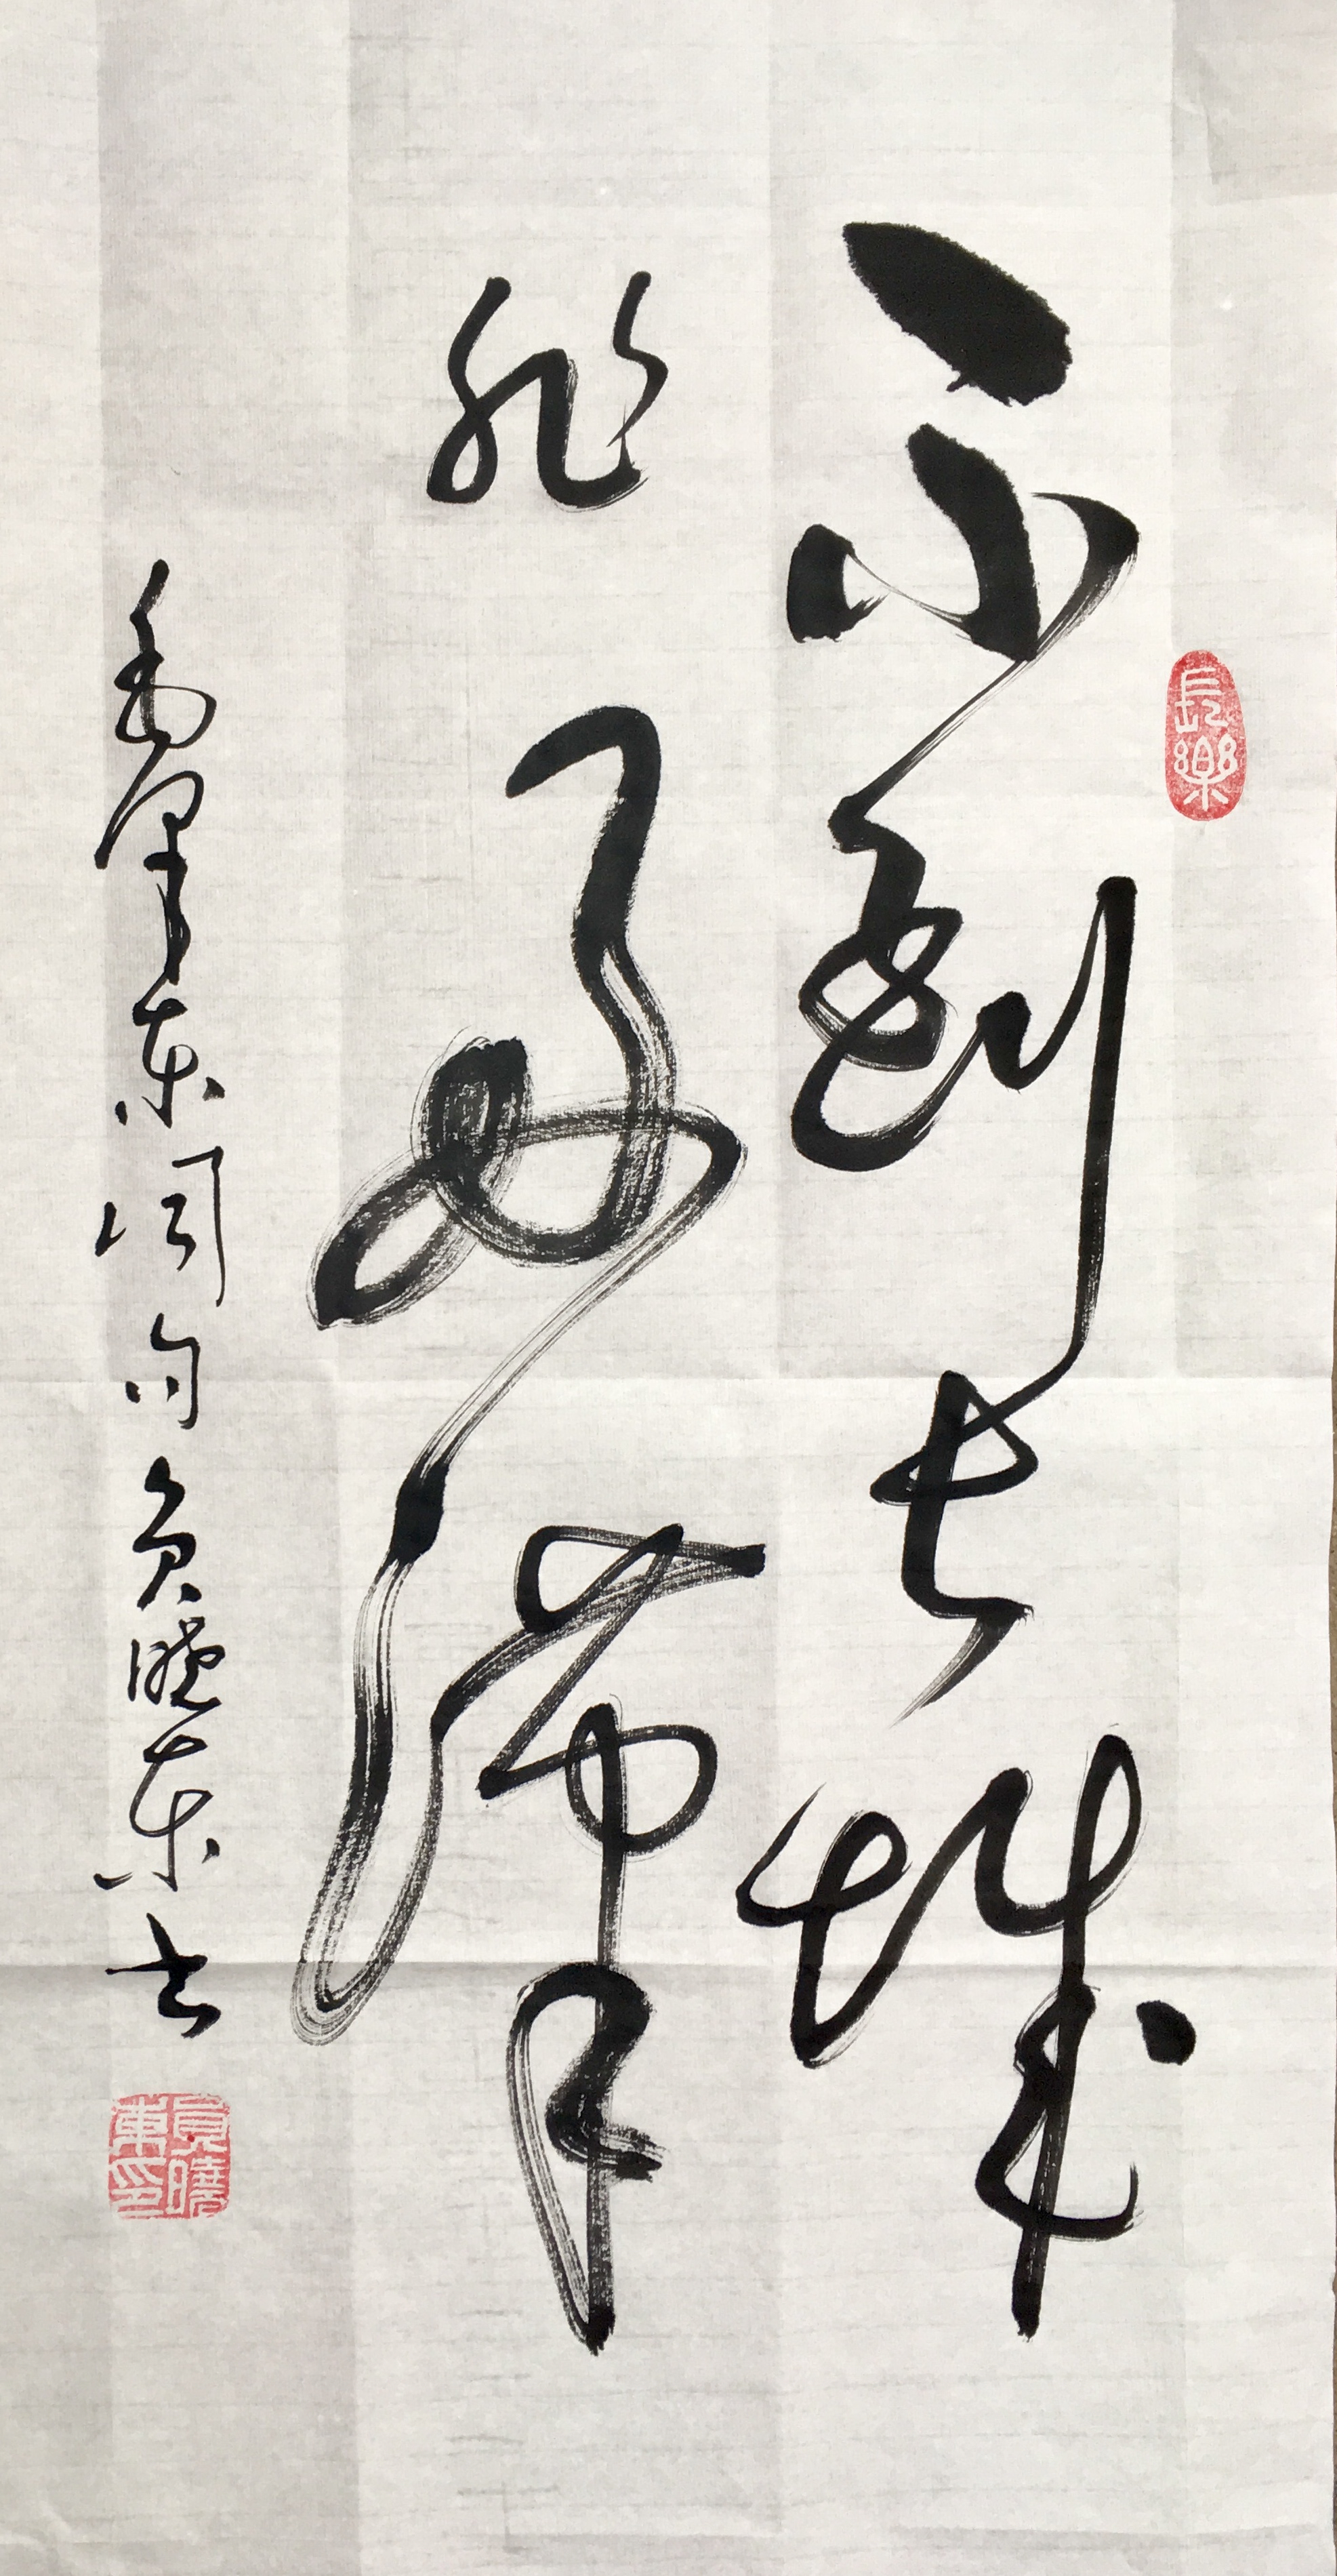 不到长城
非好汉
毛泽东词句负晓东书
長樂
負曉東印